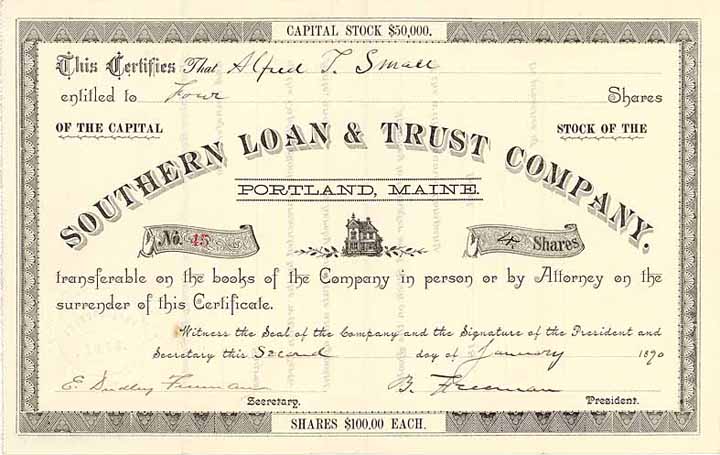 CAPITAL STOCK $50,000.
This Certifies That Alfred T. Small
entitled to Four Shares
OF THE CAPITAL STOCK OF THE
SOUTHERN LOAN & TRUST COMPANY.
PORTLAND, MAINE.
No. 45 4 Shares
transferable on the books of the Company in person or by Attorney on the
surrender of this Certificate.
Witness the Seal of the Company and the Signature of the President and
Secretary this Second day of January 1890
E. Dudley Freeman B. Freeman
Secretary. President.
SHARES $100.00 EACH.